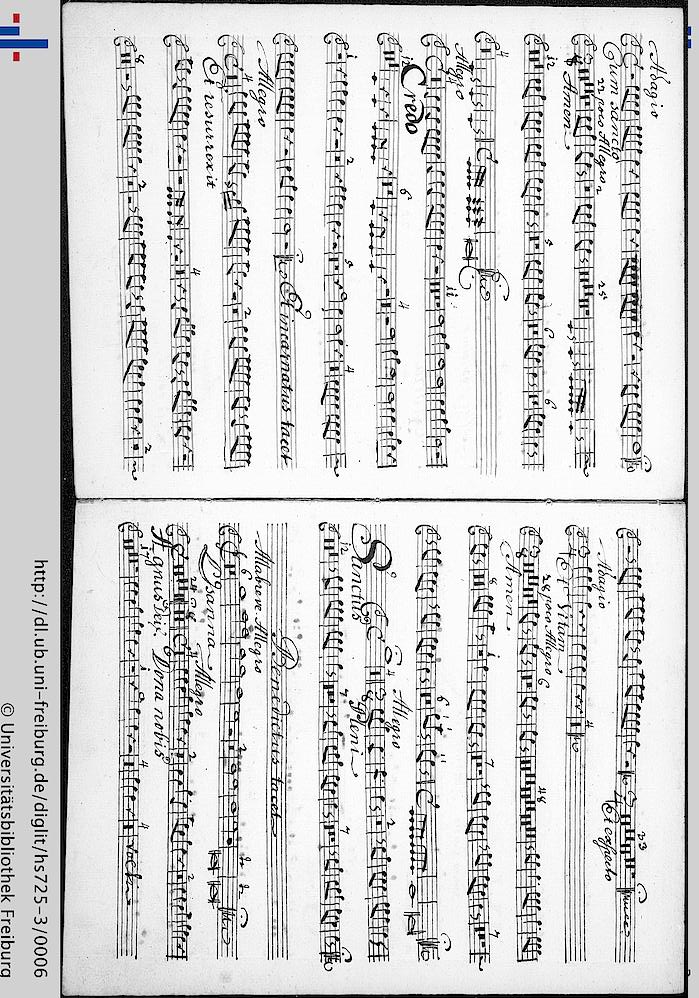 Adagio
Cum sancto
poco Allegro
Amen
Allegro
Credo
Et incarnatus tacet
Allegro
Et resurrexit
Et expecto
Adagio
Et vitam
poco Allegro
Amen
Allegro
Sanctus
Pleni
Benedictus tacet
Allabreve Allegro
Osanna
Allegro
Agnus Dei
Dona nobis
http://dl.ub.uni-freiburg.de/diglit/hs725-3/0006
© Universitätsbibliothek Freiburg